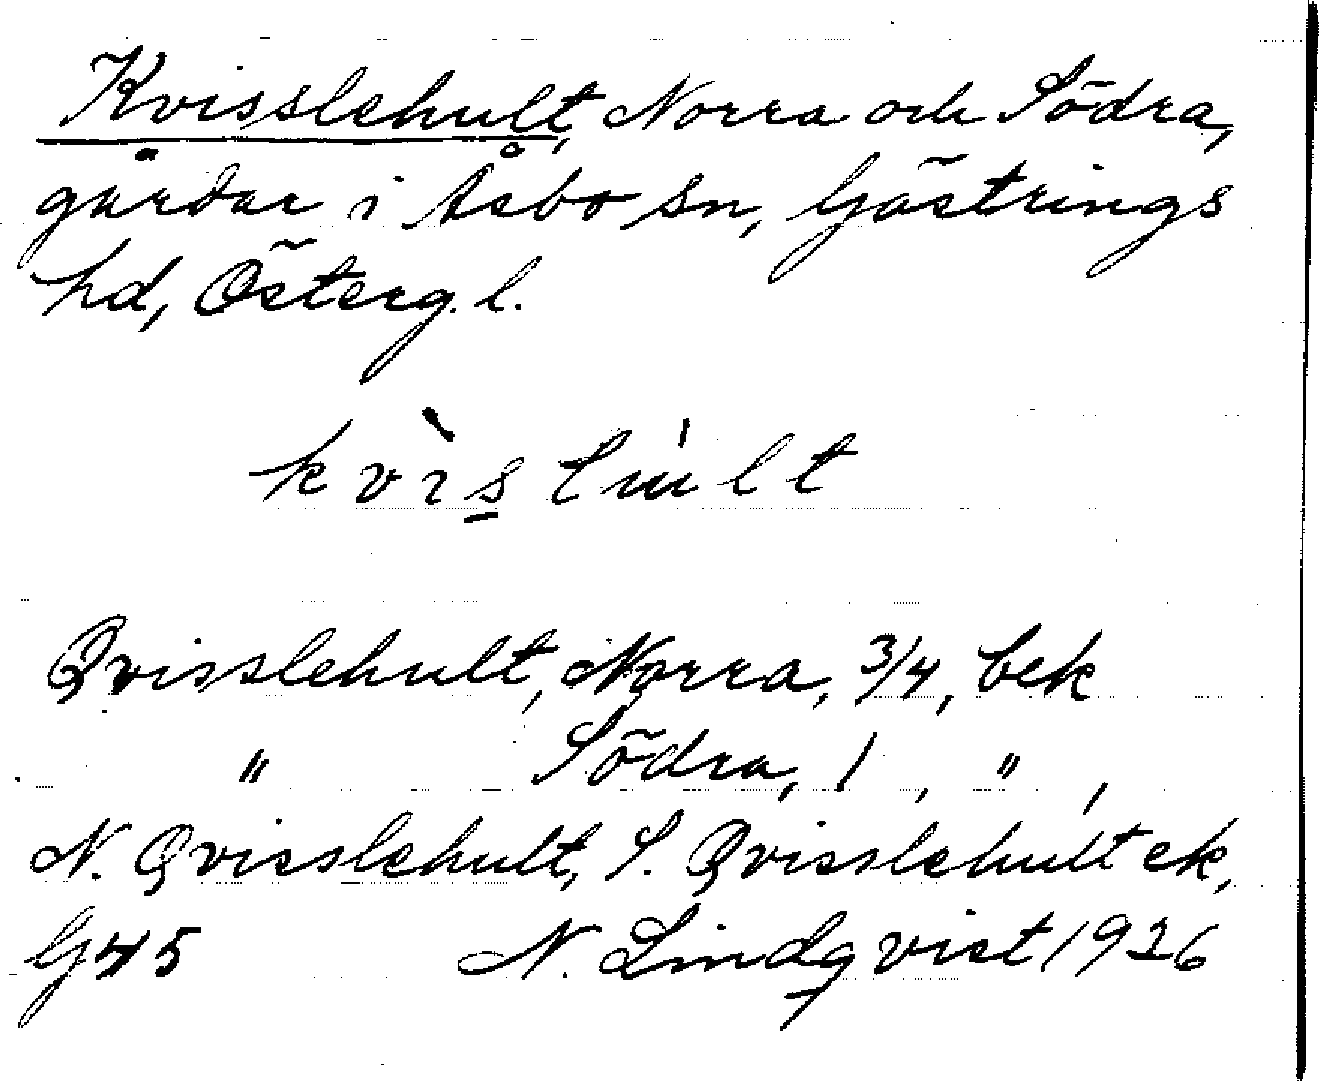 Kvisslehult, Norra och Södra,
gårdar i Åsbo sn, Göstrings
hd, Österg. l.
Qvisslehult, Norra, 3/4, bek
" Södra, 1, ",
N. Qvisslehult, S. Qvisslehult ek,
G45 N. Lindqvist 1926